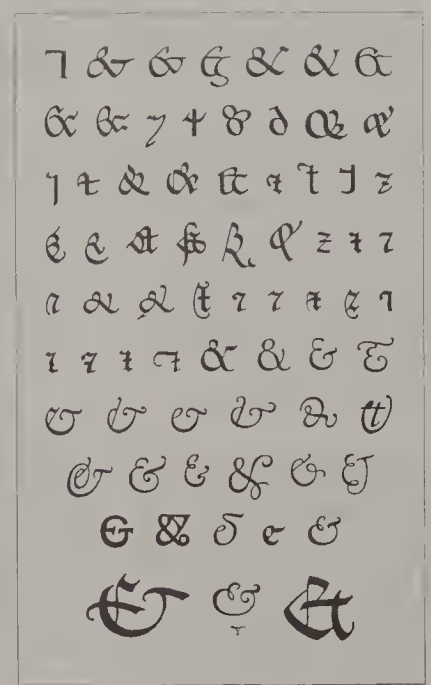 ⁊ & & & & & &
& & ⁊ ⁊ & & & &
⁊ ⁊ & & & ⁊ ⁊ ⁊ ⁊
& & & & & & ⁊ ⁊ ⁊
⁊ & & & ⁊ ⁊ ⁊ & ⁊
⁊ ⁊ ⁊ ⁊ & & & &
& & & & & &
& & & & & &
& & & & &
& & &